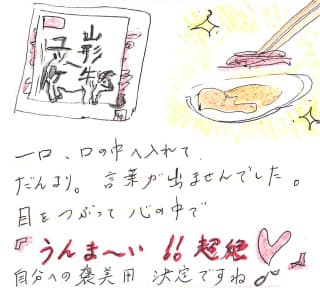 山形牛
ユッケ
一口、口の中へ入れて
だんまり。言葉が出ませんでした。
目をつぶって心の中で
『うんま～い!!超絶
自分への褒美用 決定ですね